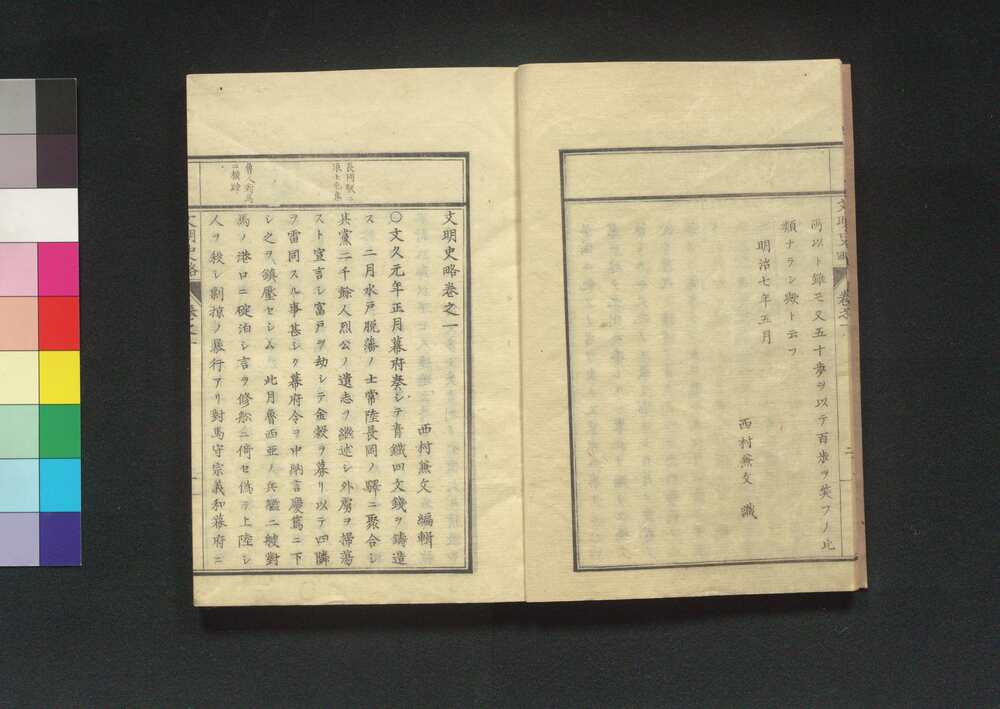 所以ト錄モ又五十步ヲ以テ百步ヲ笑フノ比
類ナラン歟ト云フ
明治七年五月
西村兼文 識
文明史略 卷之一
二
文明史略卷之一
西村兼文 編輯
〇文久元年正月幕府奏シテ青鐵四文錢ヲ鑄造
ス 二月水戶脫藩ノ士常陸長岡ノ驛ニ聚合シ
其黨二千餘人烈公ノ遺志ヲ繼述シ外虜ヲ掃蕩
スト宣言シ富戶ヲ劫シテ金穀ヲ募リ以テ四隣
ヲ雷同スル事甚シク幕府令ヲ中納言慶篤ニ下
シ之ヲ鎭壓セシム 此月魯西亞ノ兵艦二艘對
馬ノ港口ニ碇泊シ言ヲ修船ニ倚セ僞テ上陸シ
人ヲ殺シ剽掠ノ暴行アリ對馬守宗義和幕府ニ
長岡驛ニ
浪士屯集
魯人對馬
ニ橫肆
文明史略 卷之一